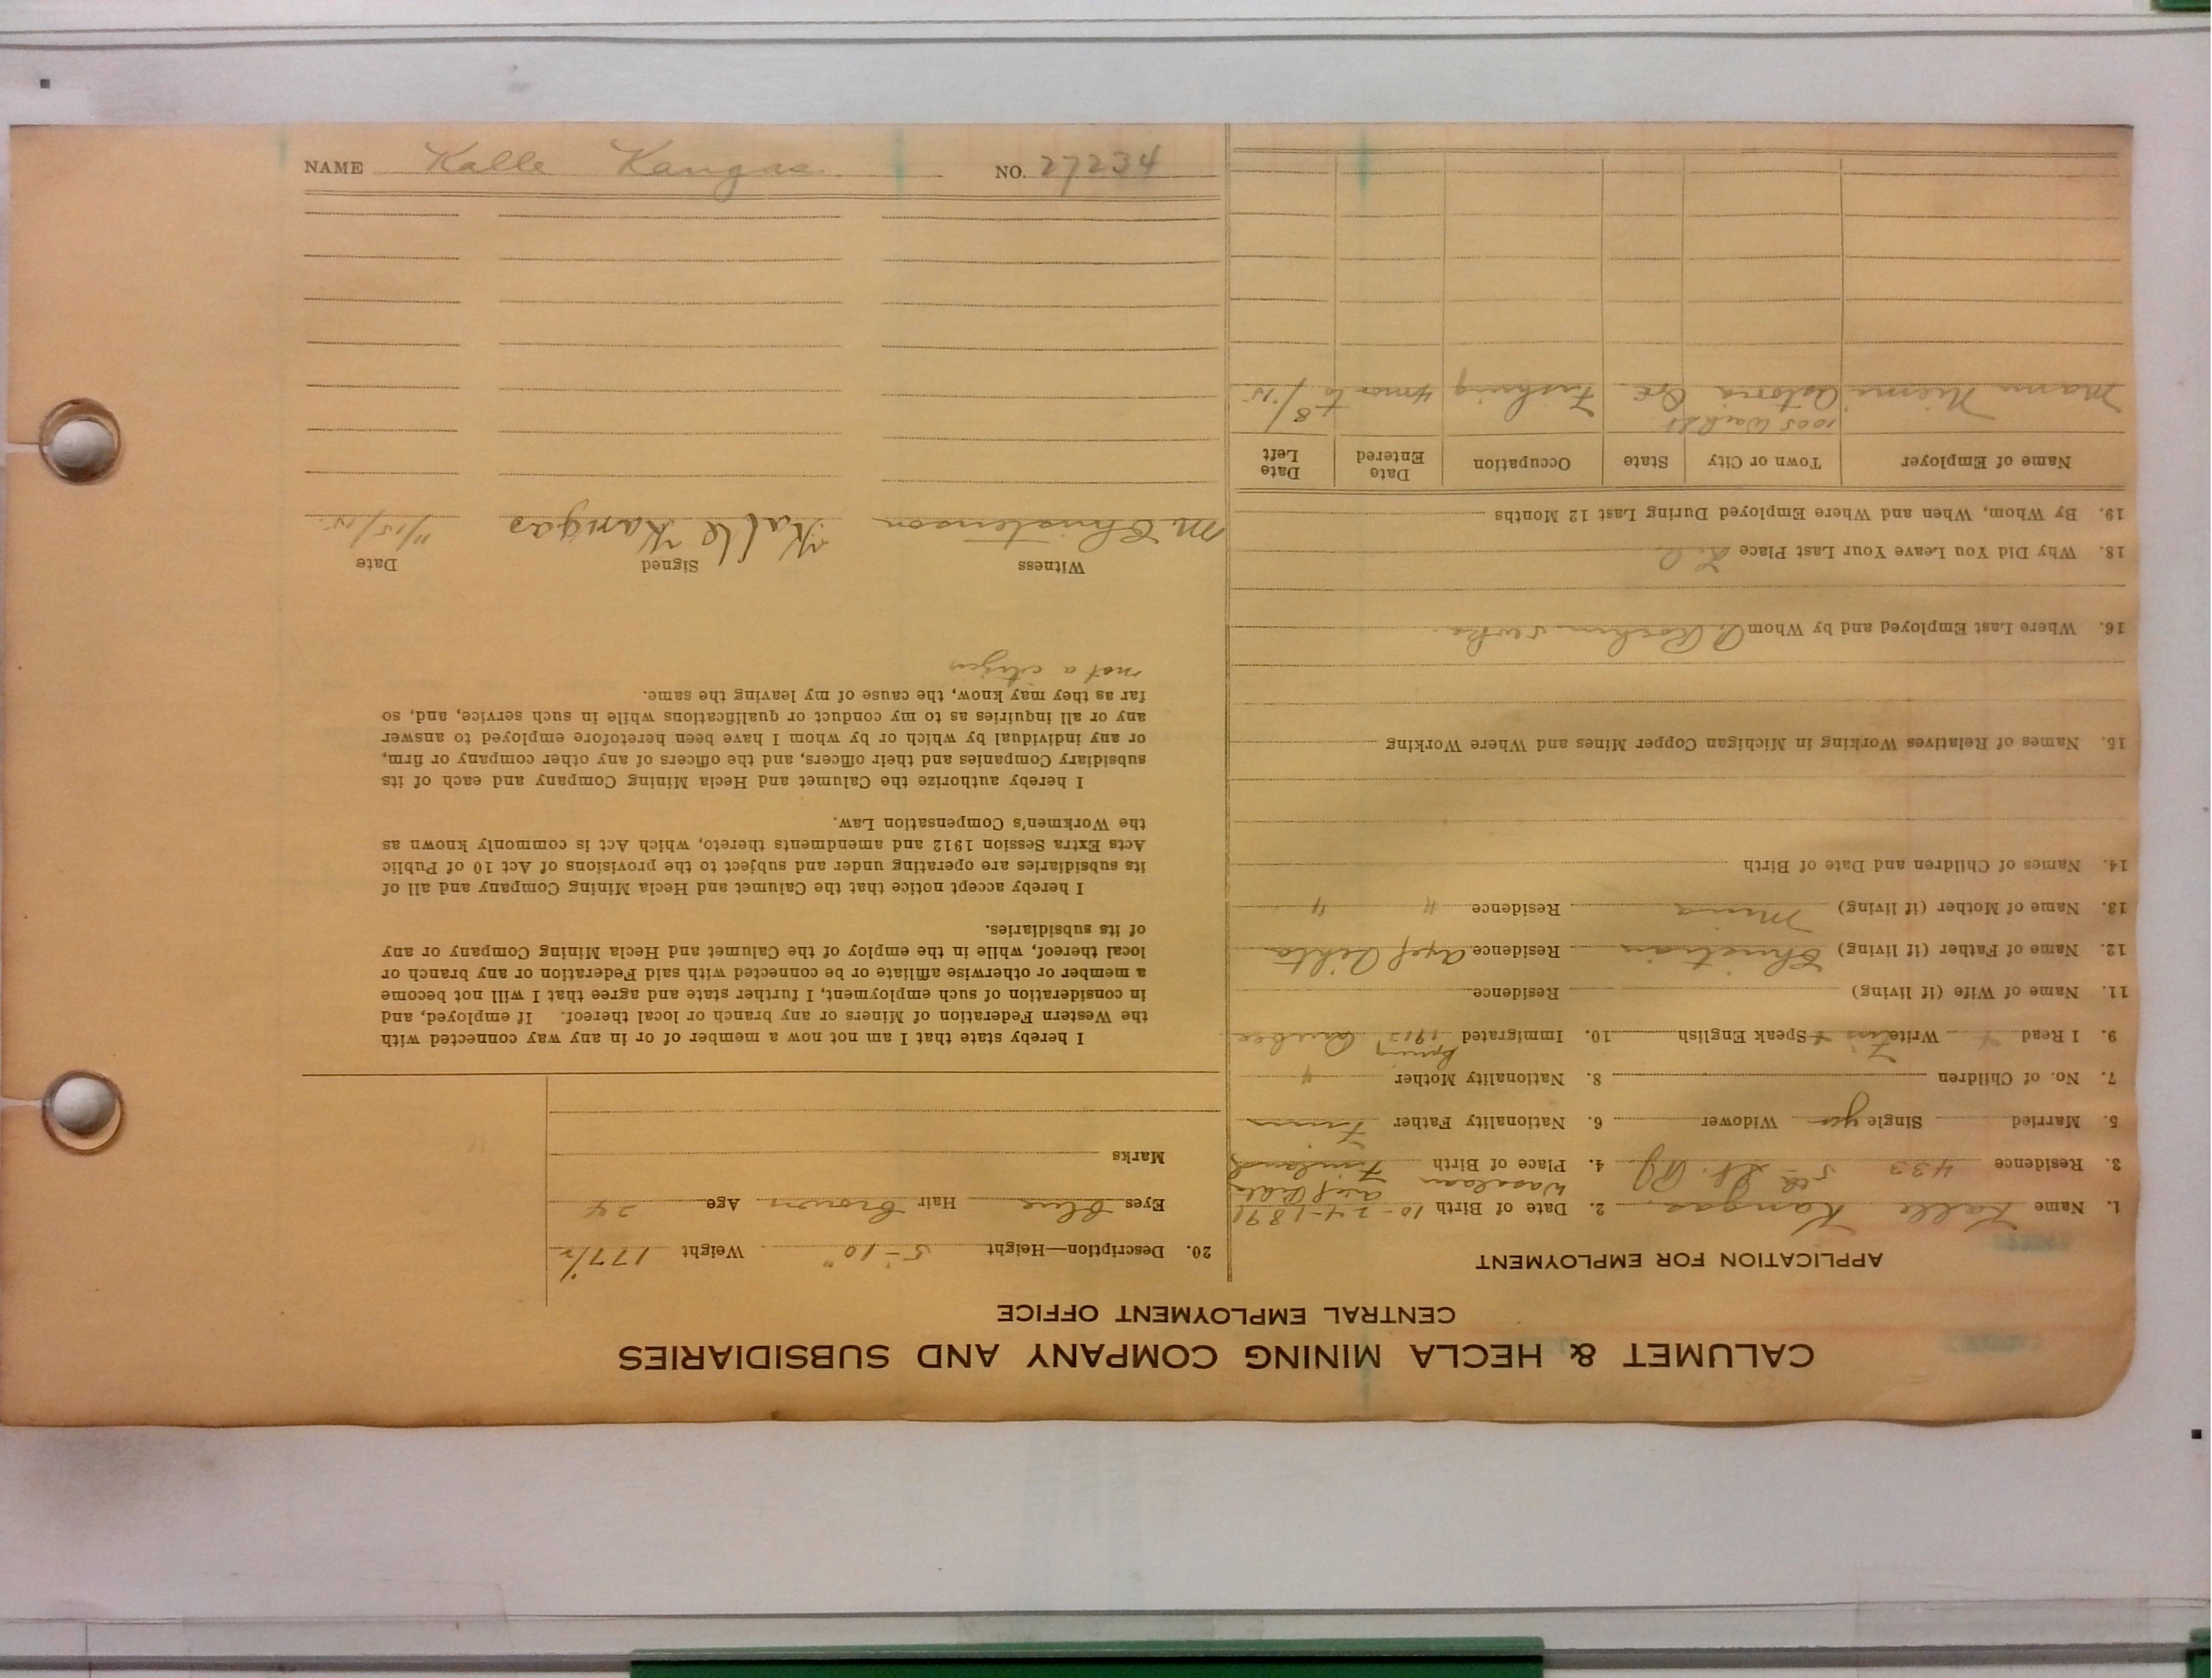 CALUMET & HECLA MINING COMPANY AND SUBSIDIARIES
CENTRAL EMPLOYMENT OFFICE
APPLICATION FOR EMPLOYMENT
1. Name Kalle Kangas. 2. Date of Birth 10-24-1891
3. Residence 433 5th St. 4. Place of Birth Finland
5. Married Single yes Widower 6. Nationality Father Finn
7. No. of Children 8. Nationality Mother "
9. I Read Write Speak English 10. Immigrated Spring
11. Name of Wife (if living) Residence
12. Name of Father (if living) Christian Residence
13. Name of Mother (if living) Residence " "
14. Names of Children and Date of Birth
15. Names of Relatives Working in Michigan Copper Mines and Where Working
16. Where Last Employed and by Whom
18. Why Did You Leave Your Last Place
19. By Whom, When and Where Employed During Last 12 Months
Name of Employer Town or City State Occupation Date Entered Date Left
1005
Niemi Astoria Ore Fishing
20. Description—Height 5-10" Weight 177½
Eyes blue Hair brown Age 24
Marks
I hereby state that I am not now a member of or in any way connected with
the Western Federation of Miners or any branch or local thereof. If employed, and
in consideration of such employment, I further state and agree that I will not become
a member or otherwise affiliate or be connected with said Federation or any branch or
local thereof, while in the employ of the Calumet and Hecla Mining Company or any
of its subsidiaries.
I hereby accept notice that the Calumet and Hecla Mining Company and all of
its subsidiaries are operating under and subject to the provisions of Act 10 of Public
Acts Extra Session 1912 and amendments thereto, which Act is commonly known as
the Workmen's Compensation Law.
I hereby authorize the Calumet and Hecla Mining Company and each of its
subsidiary Companies and their officers, and the officers of any other company or firm,
or any individual by which or by whom I have been heretofore employed to answer
any or all inquiries as to my conduct or qualifications while in such service, and, so
far as they may know, the cause of my leaving the same.
not a citizen
Witness Signed Date
M. Christenson Kalle Kangas 11/15/15
NAME Kalle Kangas. NO. 27234